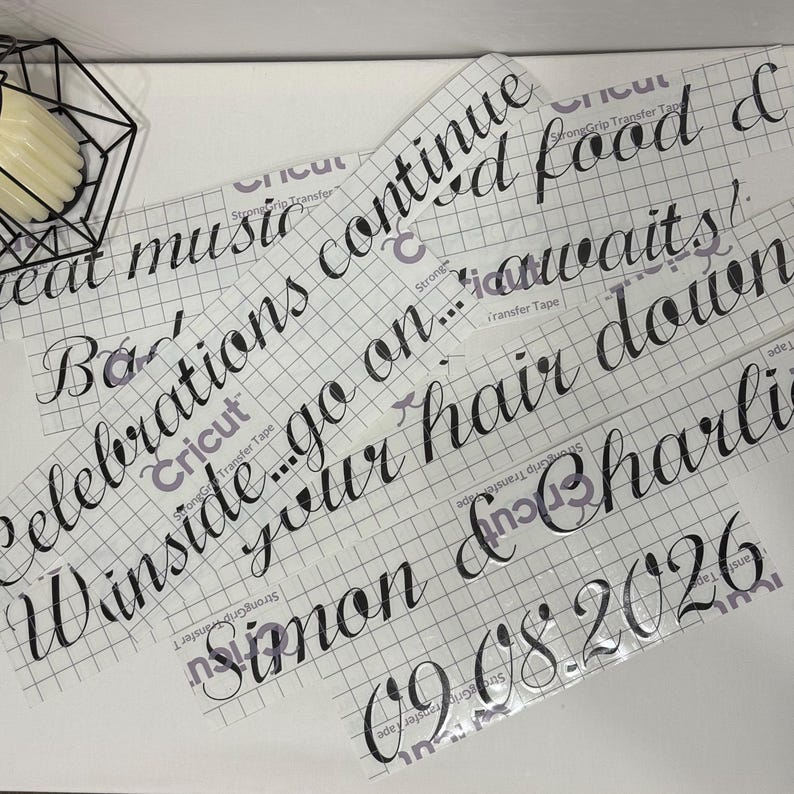 Cricut
StrongGrip Transfer Tape
food &
Cricut
StrongGrip Transfer Tape
music
Celebrations continue
inside...go on...
Cricut
StrongGrip Transfer Tape
awaits!
Cricut
Transfer Tape
Bad
your hair down
W
Simon & Charlie
Cricut
StrongGrip Transfer Tape
09.08.2026
Cricut
StrongGrip Transfer Tape